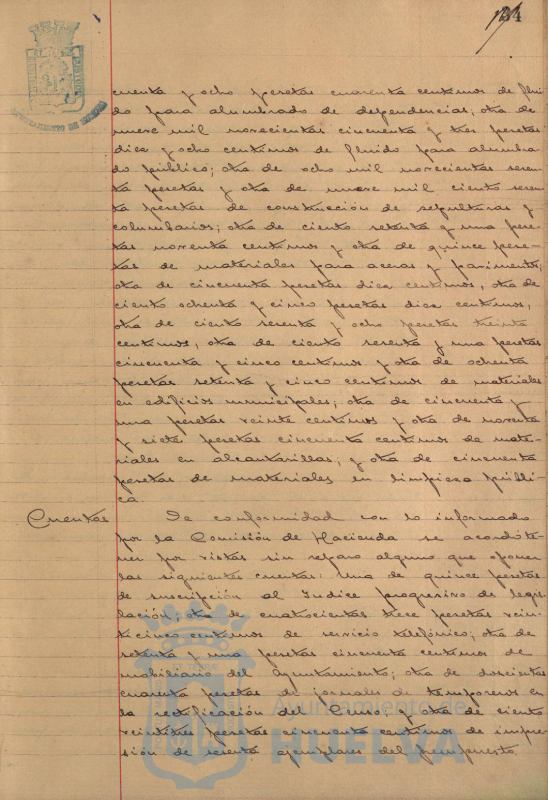 134
AYUNTAMIENTO DE HUELVA
cuenta y ocho pesetas cuarenta centimos de flui
do para alumbrado de dependencias; otra de
nueve mil novecientas cincuenta y tres pesetas
diez y ocho centimos de fluido para alumbra
do público; otra de ocho mil novecientas seten
ta pesetas y otra de nueve mil ciento seten
ta pesetas de construcción de sepulturas y
columbarios; otra de ciento setenta y una pese-
tas noventa centimos y otra de quince pese-
tas de materiales para aceras y pavimento;
otra de cincuenta pesetas diez centimos, otra de
ciento ochenta y cinco pesetas diez centimos,
otra de ciento sesenta y ocho pesetas treinta
centimos, otra de ciento sesenta y una pesetas
cincuenta y cinco centimos y otra de ochenta
pesetas setenta y cinco centimos de materiales
en edificios municipales; otra de cincuenta y
una pesetas veinte centimos y otra de noventa
y siete pesetas cincuenta centimos de mate-
riales en alcantarillas; y otra de cincuenta
pesetas de materiales en limpieza públi-
ca.
Cuentas De conformidad con lo informado
por la Comisión de Hacienda se acordó te-
ner por vistas sin reparo alguno que oponer
las siguientes cuentas: una de quince pesetas
de suscripción al Indice progresivo de legis-
lación; otra de cuatrocientas trece pesetas vein-
ticinco centimos de servicio telefónico; otra de
setenta y una pesetas cincuenta centimos de
mobiliario del Ayuntamiento; otra de doscientas
cuarenta pesetas de jornales de temporeros en
la rectificación del Censo; y otra de ciento
veintitres pesetas cincuenta centimos de impre-
sión de sesenta ejemplares del presupuesto.
Ayuntamiento de
HUELVA